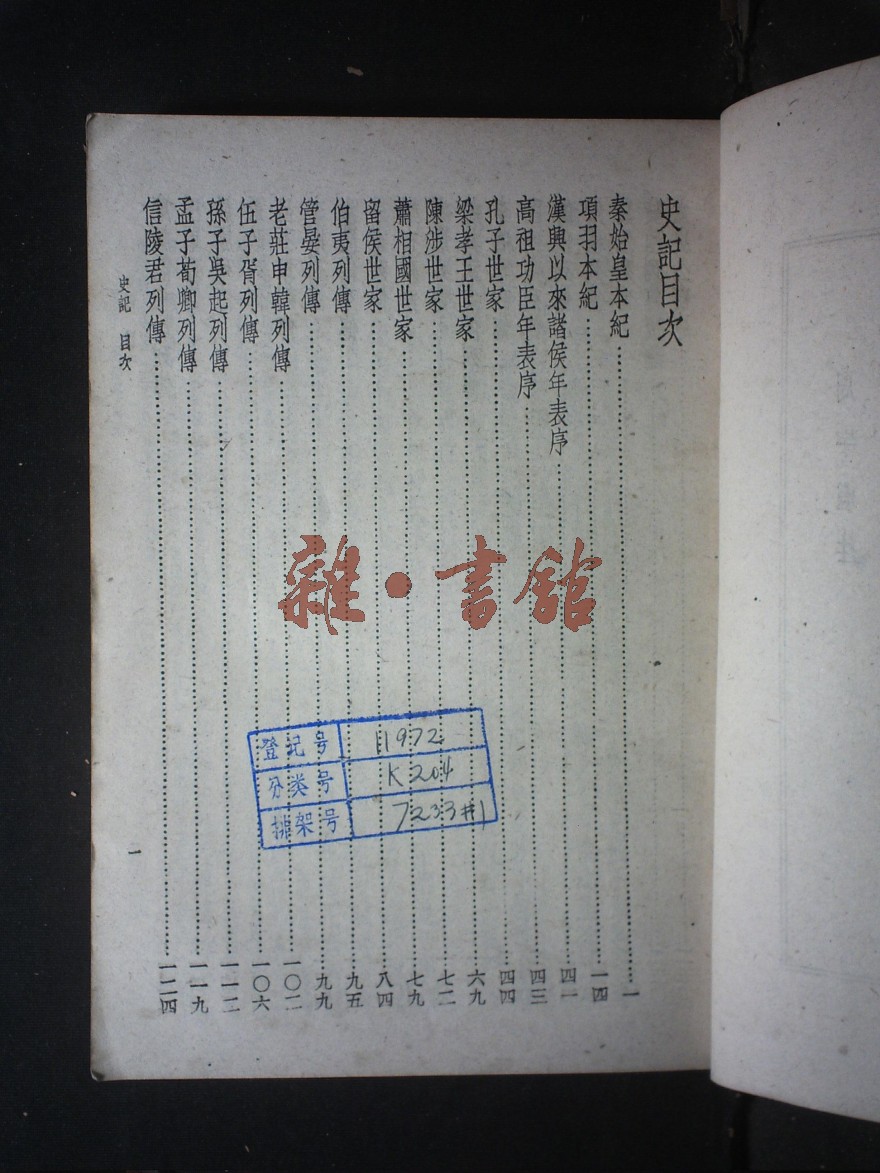 史記目次
秦始皇本紀……一
項羽本紀……一四
漢興以來諸侯年表序……四一
高祖功臣年表序……四三
孔子世家……四四
梁孝王世家……六九
陳涉世家……七二
蕭相國世家……七九
留侯世家……八四
伯夷列傳……九五
管晏列傳……九九
老莊申韓列傳……一〇二
伍子胥列傳……一〇六
孫子吳起列傳……一一二
孟子荀卿列傳……一一九
信陵君列傳……一二四
史記 目次
一
雜·書館
登记号 11972
分类号 K204
排架号 7233#1